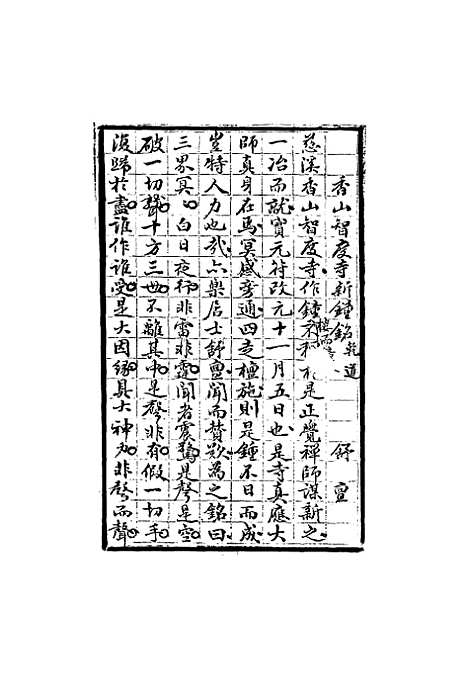 香山智度寺新鐘銘 乾道 舒亶
慈溪香山智度寺作鐘不和於是正覺禪師謀新之
一冶而就實元符改元十一月五日也是寺真應大
師真身在焉冥感旁通四走檀施則是鐘不日而成
豈特人力也哉亦樂居士舒亶聞而贊歎為之銘曰
三界冥冥白日夜行非雷非霆聞者震驚是聲是空
破一切聾十方三世不離其中是聲非有假一切手
復歸於盡誰作誰受是大因緣具大神力非聲而聲